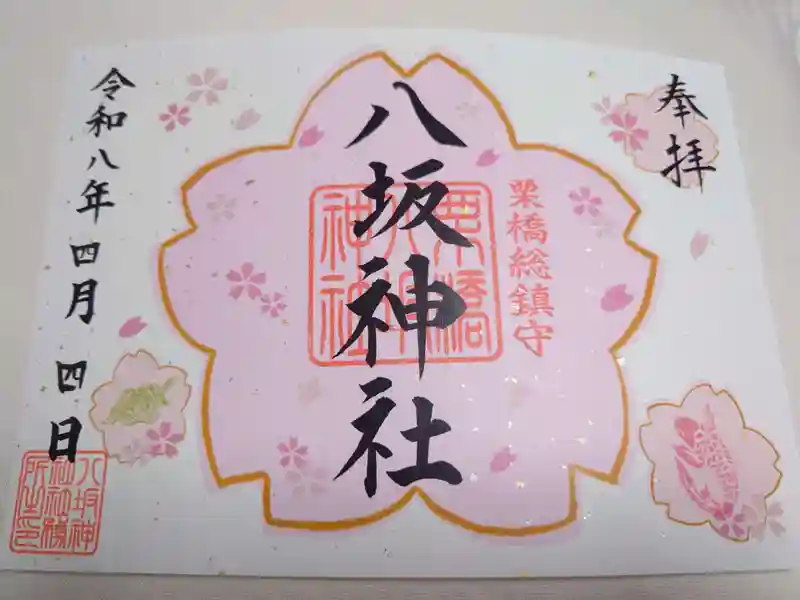 奉拝
栗橋総鎮守
八坂神社
栗橋
八坂
神社
令和八年四月四日
八坂神
社社務
所之印